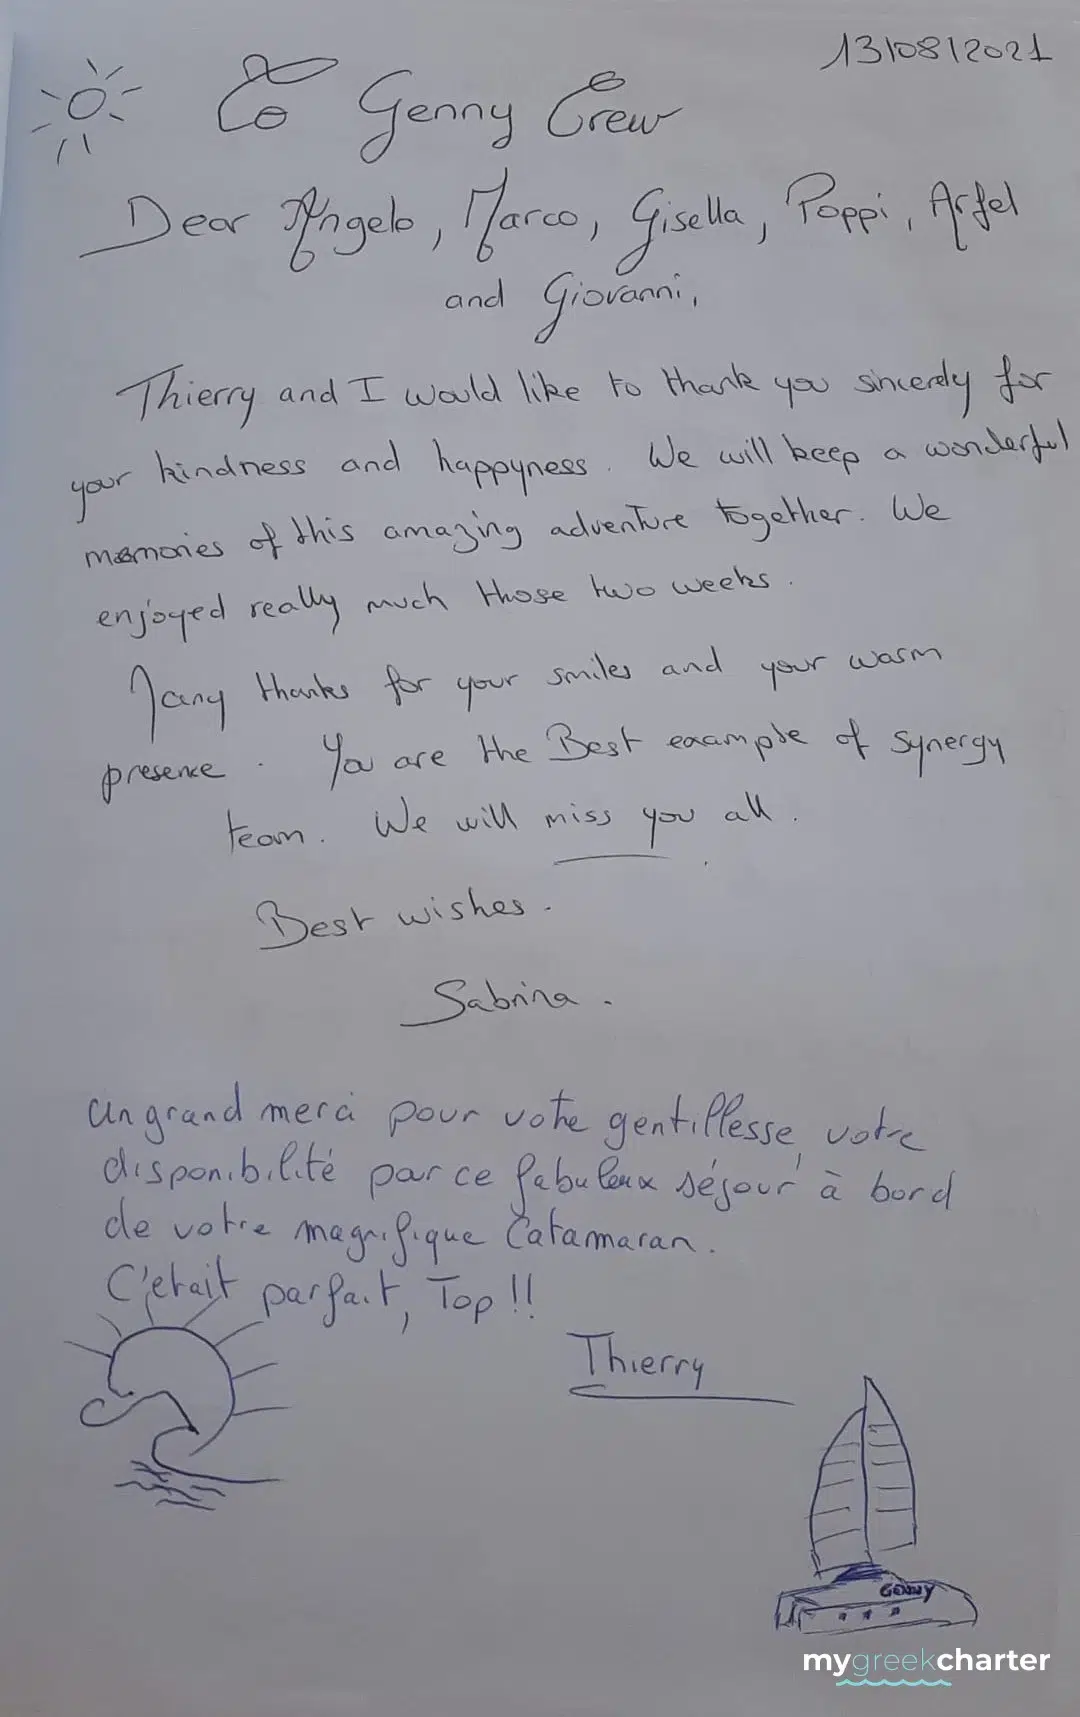 13/08/2021
To Genny Crew
Dear Angelo, Marco, Gisella, Poppi, Arfel
and Giovanni,
Thierry and I would like to thank you sincerely for
your kindness and happyness. We will keep a wonderful
memories of this amazing adventure together. We
enjoyed really much those two weeks.
Many thanks for your smiles and your warm
presence. You are the Best example of synergy
team. We will miss you all.
Best wishes.
Sabrina.
Un grand merci pour votre gentillesse, votre
disponibilité par ce fabuleux séjour à bord
de votre magnifique Catamaran.
C'etait parfait, Top !!
Thierry
GENNY
mygreekcharter